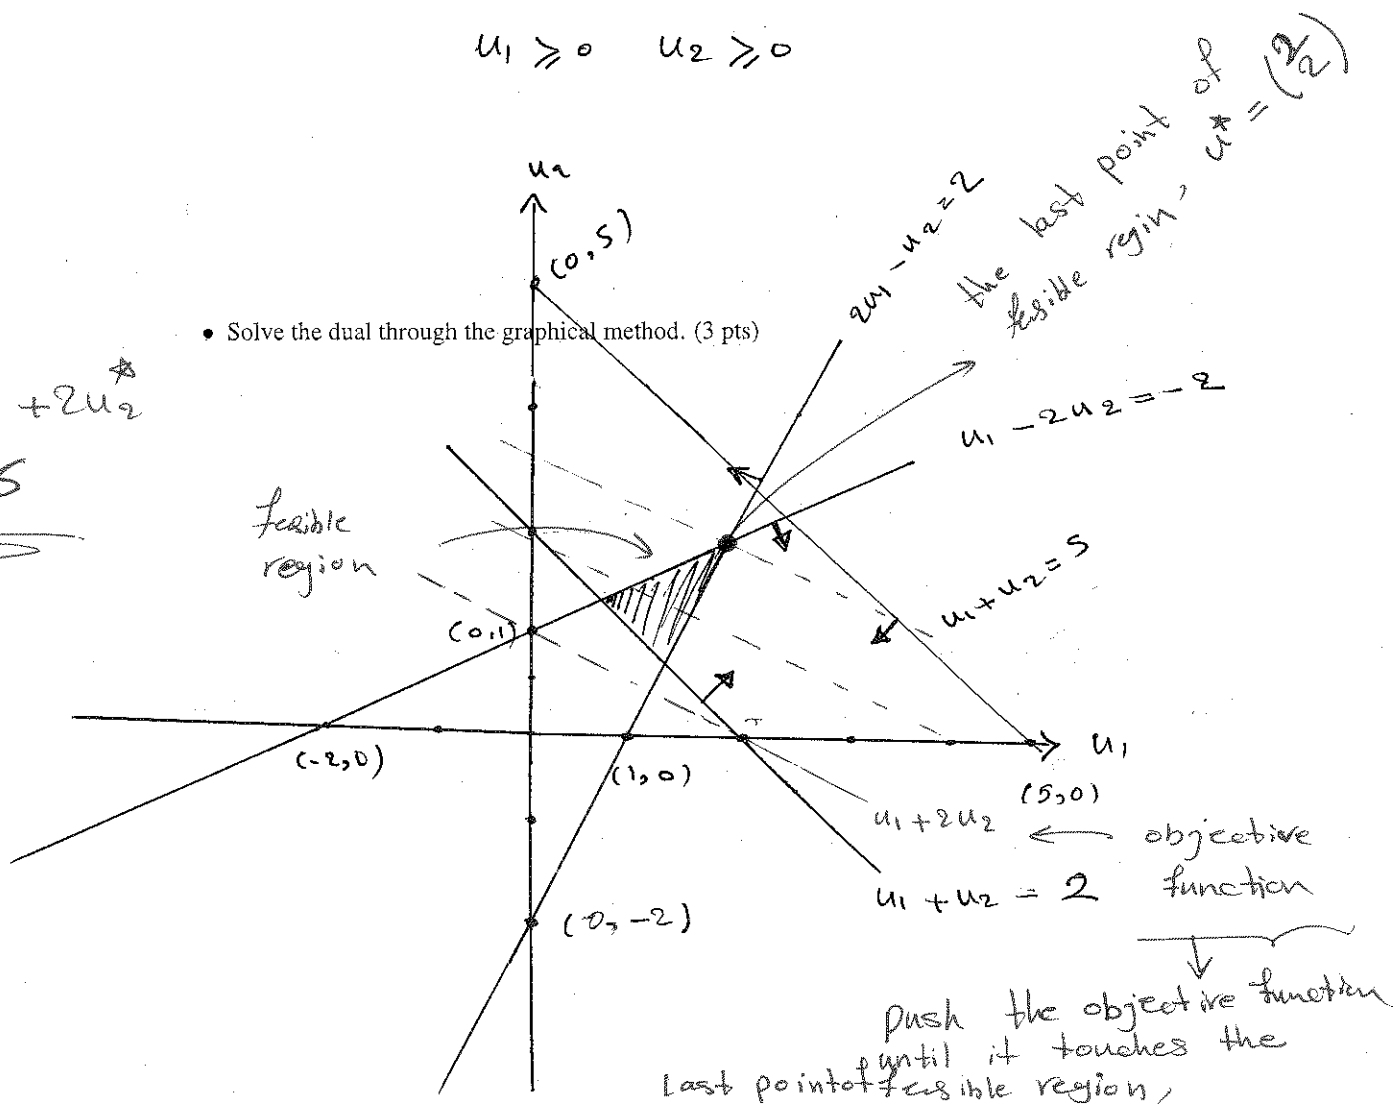 u₁ ⩾ 0 u₂ ⩾ 0
the last point of
fesible regin, u* = (2 2)
u₂
(0,5)
2u₁ - u₂ = 2
• Solve the dual through the graphical method. (3 pts)
+2u₂*
u₁ - 2u₂ = -2
5
fesible
region
u₁ + u₂ = 5
(0,1)
u₁
(-2,0)
(1,0)
(5,0)
u₁ + 2u₂ ← objective
function
u₁ + u₂ = 2
(0,-2)
push the objective function
until it touches the
Last point of fesible region,